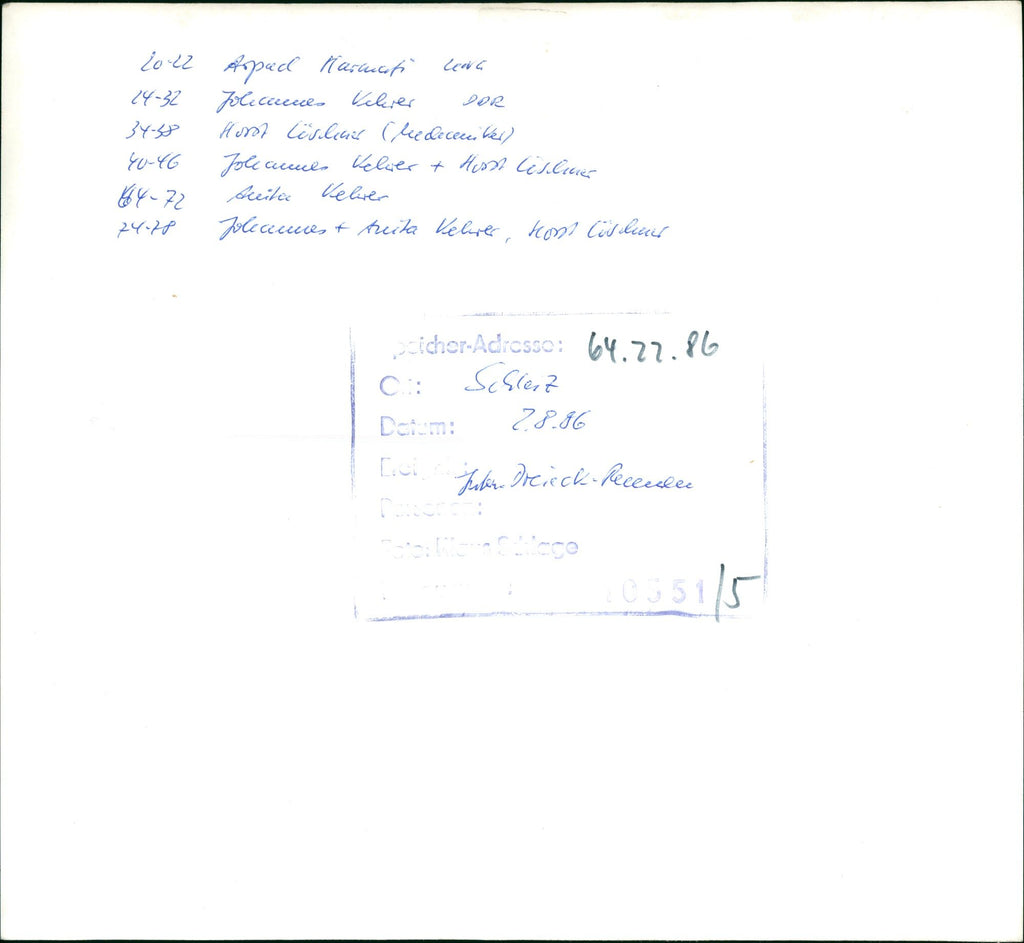 20-22 Arpad Harmati UNG
24-32 Johannes Kehrer DDR
34-38 Horst Löschner (Mechaniker)
40-46 Johannes Kehrer + Horst Löschner
64-72 Anita Kehrer
74-78 Johannes + Anita Kehrer, Horst Löschner
Speicher-Adresse: 64.22.86
Ort: Schleiz
Datum: 2.8.86
Dreieck-Rennen
Personen:
Foto: Klaus Schlage
0351/5